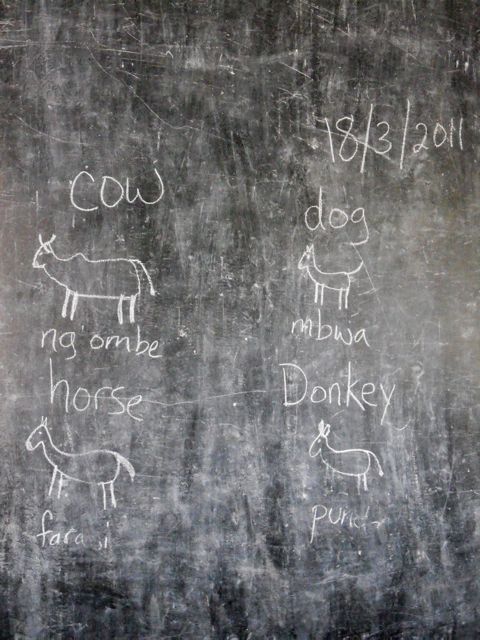 18/3/2011
cow
dog
ng'ombe
mbwa
horse
Donkey